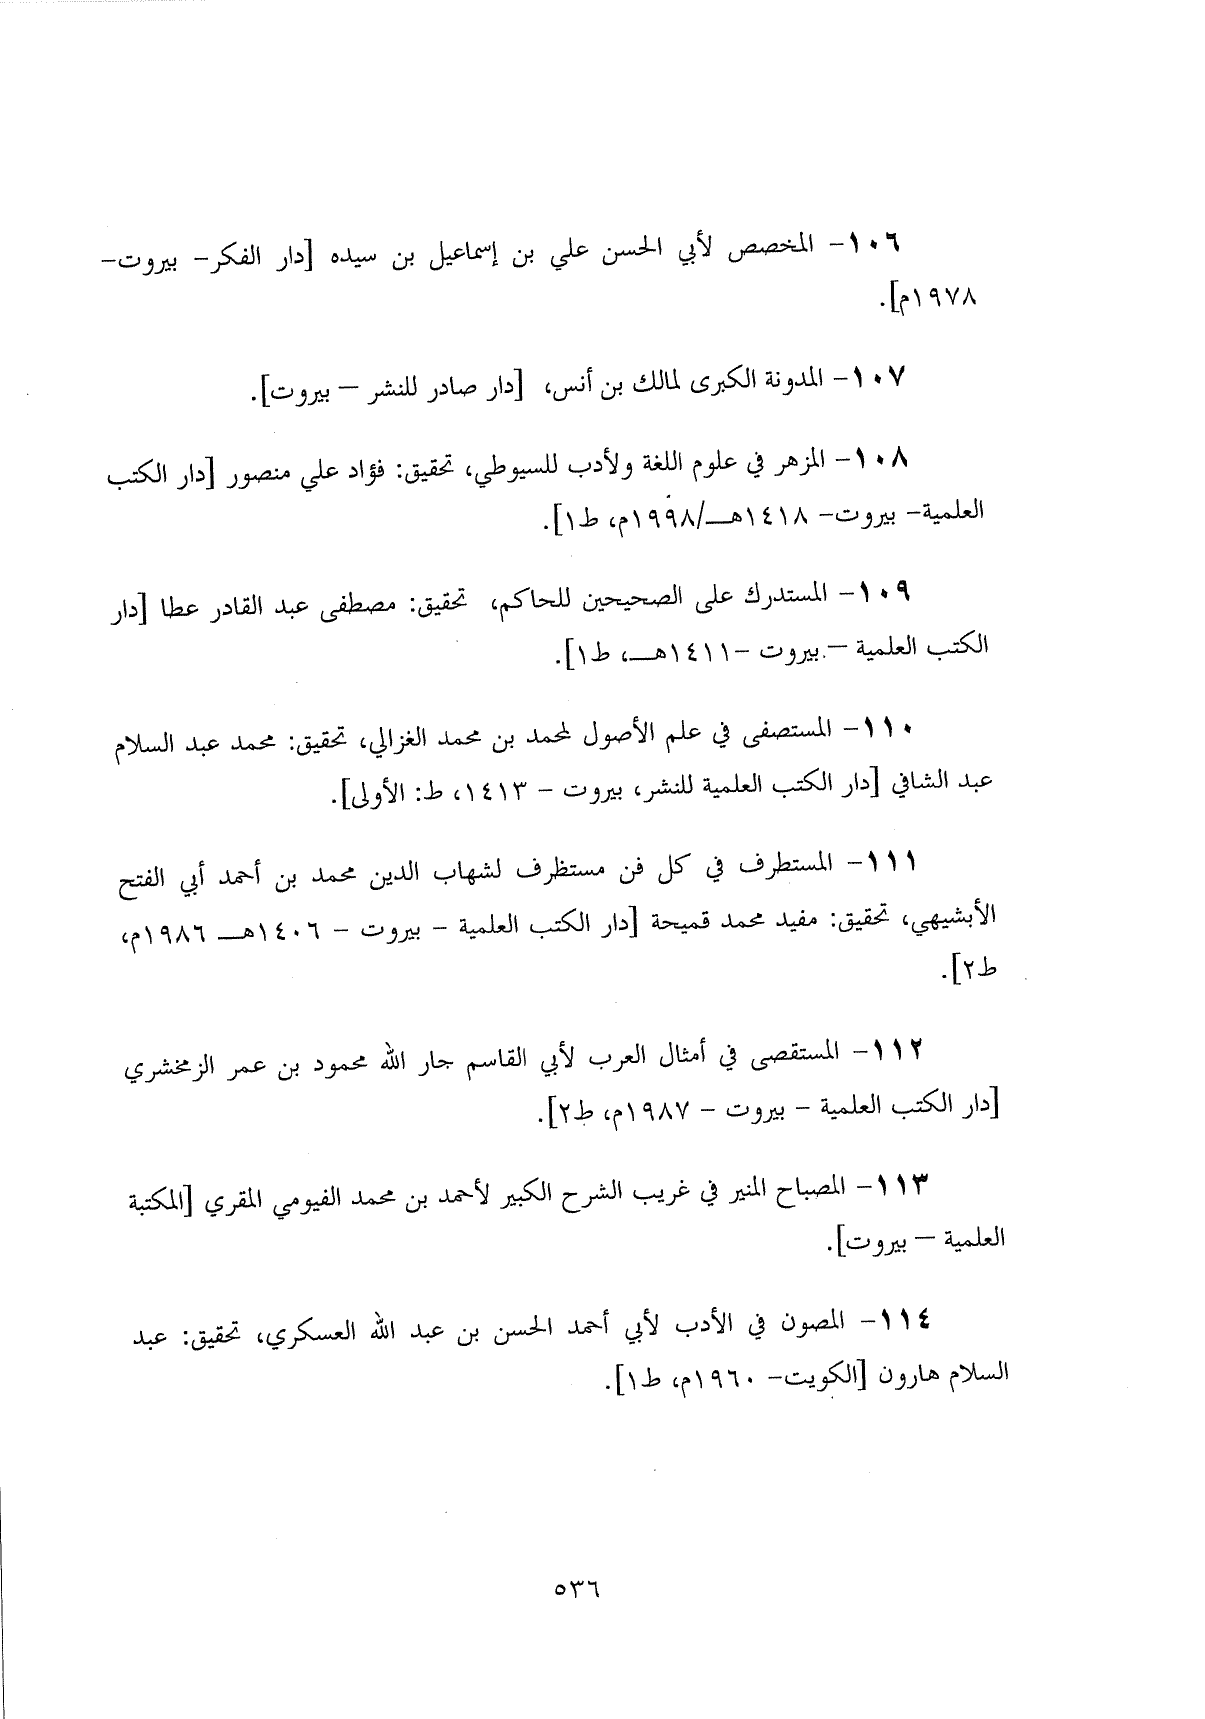 ١٠٦- المخصص لأبي الحسن علي بن إسماعيل بن سيده [دار الفكر- بيروت-
١٩٧٨م].
١٠٧- المدونة الكبرى لمالك بن أنس، [دار صادر للنشر – بيروت].
١٠٨- المزهر في علوم اللغة ولأدب للسيوطي، تحقيق: فؤاد علي منصور [دار الكتب
العلمية- بيروت- ١٤١٨هـ/١٩٩٨م، ط١].
١٠٩- المستدرك على الصحيحين للحاكم، تحقيق: مصطفى عبد القادر عطا [دار
الكتب العلمية – بيروت -١٤١١هـ، ط١].
١١٠- المستصفى في علم الأصول لمحمد بن محمد الغزالي، تحقيق: محمد عبد السلام
عبد الشافي [دار الكتب العلمية للنشر، بيروت - ١٤١٣، ط: الأولى].
١١١- المستطرف في كل فن مستظرف لشهاب الدين محمد بن أحمد أبي الفتح
الأبشيهي، تحقيق: مفيد محمد قميحة [دار الكتب العلمية - بيروت - ١٤٠٦هـ ١٩٨٦م،
ط٢].
١١٢- المستقصى في أمثال العرب لأبي القاسم جار الله محمود بن عمر الزمخشري
[دار الكتب العلمية - بيروت - ١٩٨٧م، ط٢].
١١٣- المصباح المنير في غريب الشرح الكبير لأحمد بن محمد الفيومي المقري [المكتبة
العلمية – بيروت].
١١٤- المصون في الأدب لأبي أحمد الحسن بن عبد الله العسكري، تحقيق: عبد
السلام هارون [الكويت- ١٩٦٠م، ط١].
٥٣٦